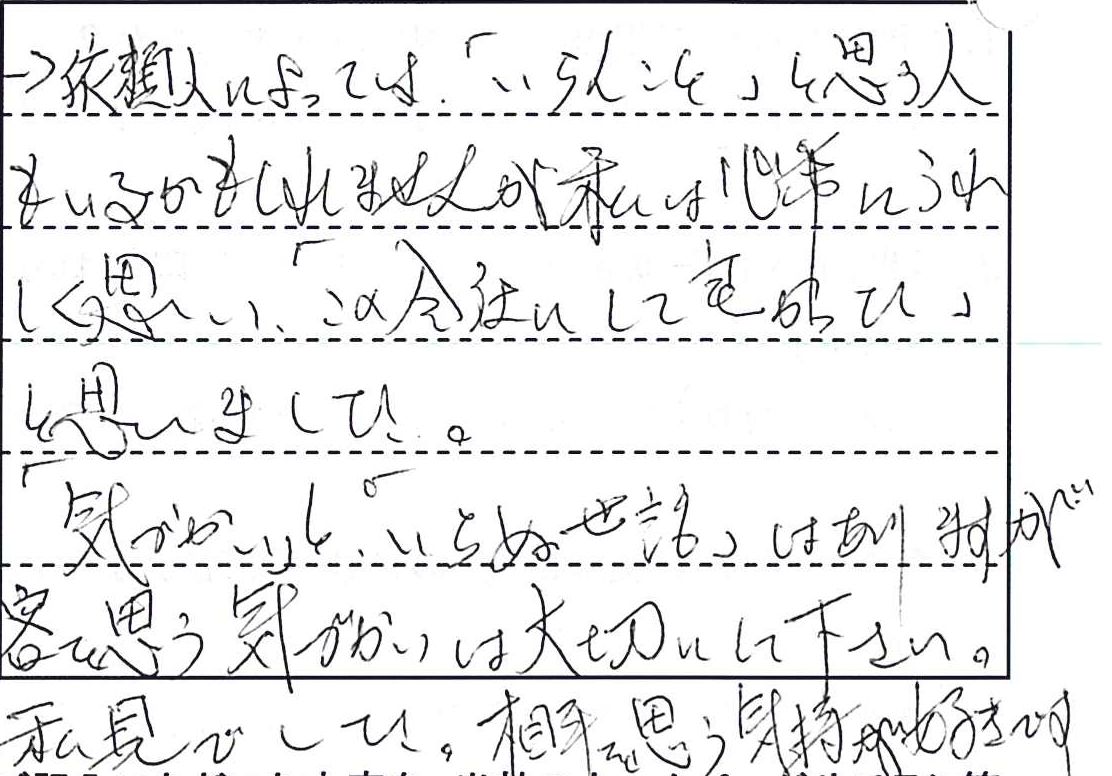 →依頼人によっては、「いらんこと」と思う人
もいるかもしれませんが私は非常にうれ
しく思い、「この会社にして良かった」
と思いました。
「気づかい」と「いらぬ世話」はありますが
客を思う気づかいは大切にして下さい。
私見でした。相手を思う気持が好きです